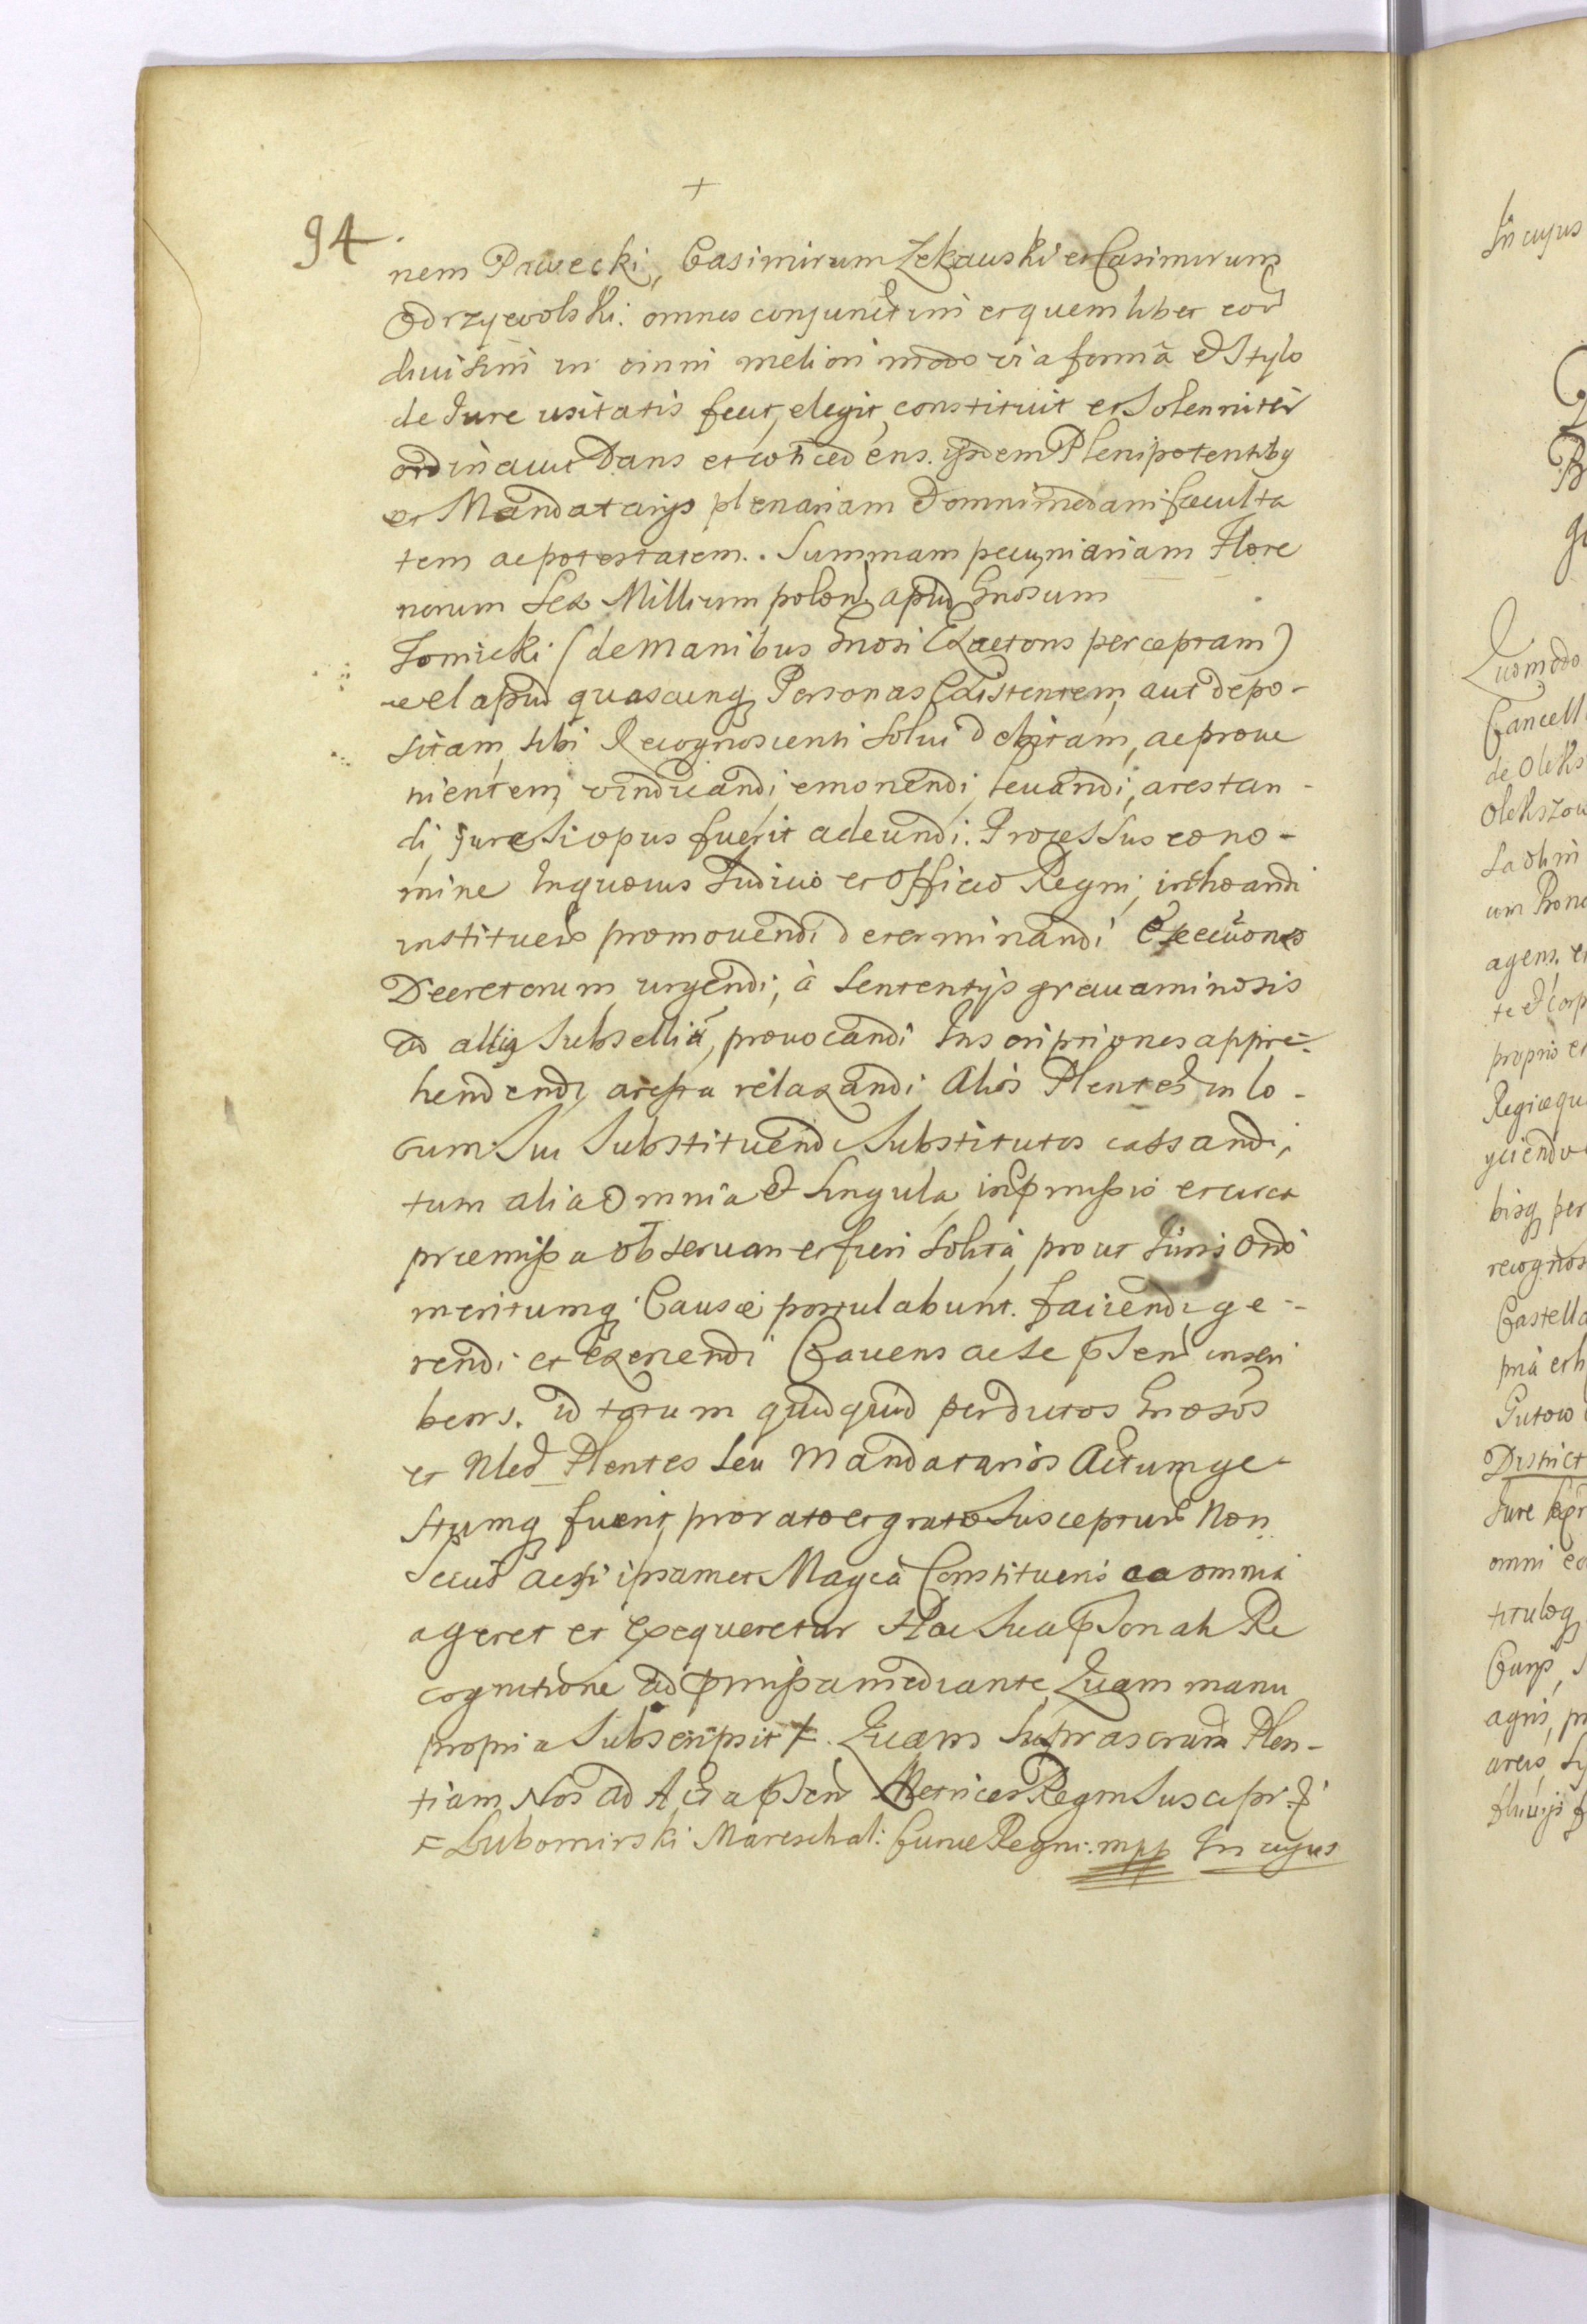 +
94.
nem Prusecki, Casimirum Zekauski et Casimirum
Odrzywolski: omnes conjunctim et quemlibet eor
diuisim in omni meliori modo via forma et Stylo
de Jure usitatis fecit, elegit, constituit et Solenniter
ordinauit Dans et concedens. ijsdem Plenipotentibq
et Mandatarijs plenariam et omnimodam faculta
tem ac potestatem. Summam pecuniariam Flore
norum Sex Millium polon apud Gnosum
Łomicki (de manibus Gnosi Exactoris perceptam)
vel apud quascunq Personas Existentem, aut depo-
sitam, sibi Recognoscenti Solui debitam, ac proue
nientem, vindicandi, emonendi, leuandi, arestan-
di, Jure si opus fuerit adeundi. Processus eo no-
mine In quouis Judicio et Officio Regni, inchoandi
instituen promouendi determinandi Executiones
Decretorum urgendi, à Sententijs grauaminosis
ad alia Subsellia, prouocandi Inscriptiones appre-
hendendi, aresta relaxandi Alios Plentes in lo-
cum Sui Substituendi Substitutos cassandi,
tum alia Omnia et Singula in pmissis et circa
praemissa obseruari et fieri Solita, prout Juris Ordo
meritumq Causae postulabunt. faciendi, ge-
rendi et exercendi Cauens ac se pnsen inscri
bens. id totum quidquid per dictos Gnosos
et Nles Plentes seu Mandatarios Actum ge-
stumq fuerit, pro rato et grato Suscepturu Non
Secus ac si ipsamet Magca Constituens ea omnia
ageret et exequeretur Hac Sua psonali Re
cognitione ad pmissa mediante, Quam manu
propria Subscripsit Ł. Quam Suprascriptam Plen-
tiam Nos ad Acta psen Metrices Regni Suscepi.
Lubomirski Mareschal: Curiae Regni: mpp In cujus
In cujus
Quomodo
Cancell
de Oleks
Olekszow
agens. e
proprio et
Regiaequ
bisq per
recognos
Castella
pria et h
Gutow
District
Jure
omni eo
titulоq
agris, pr